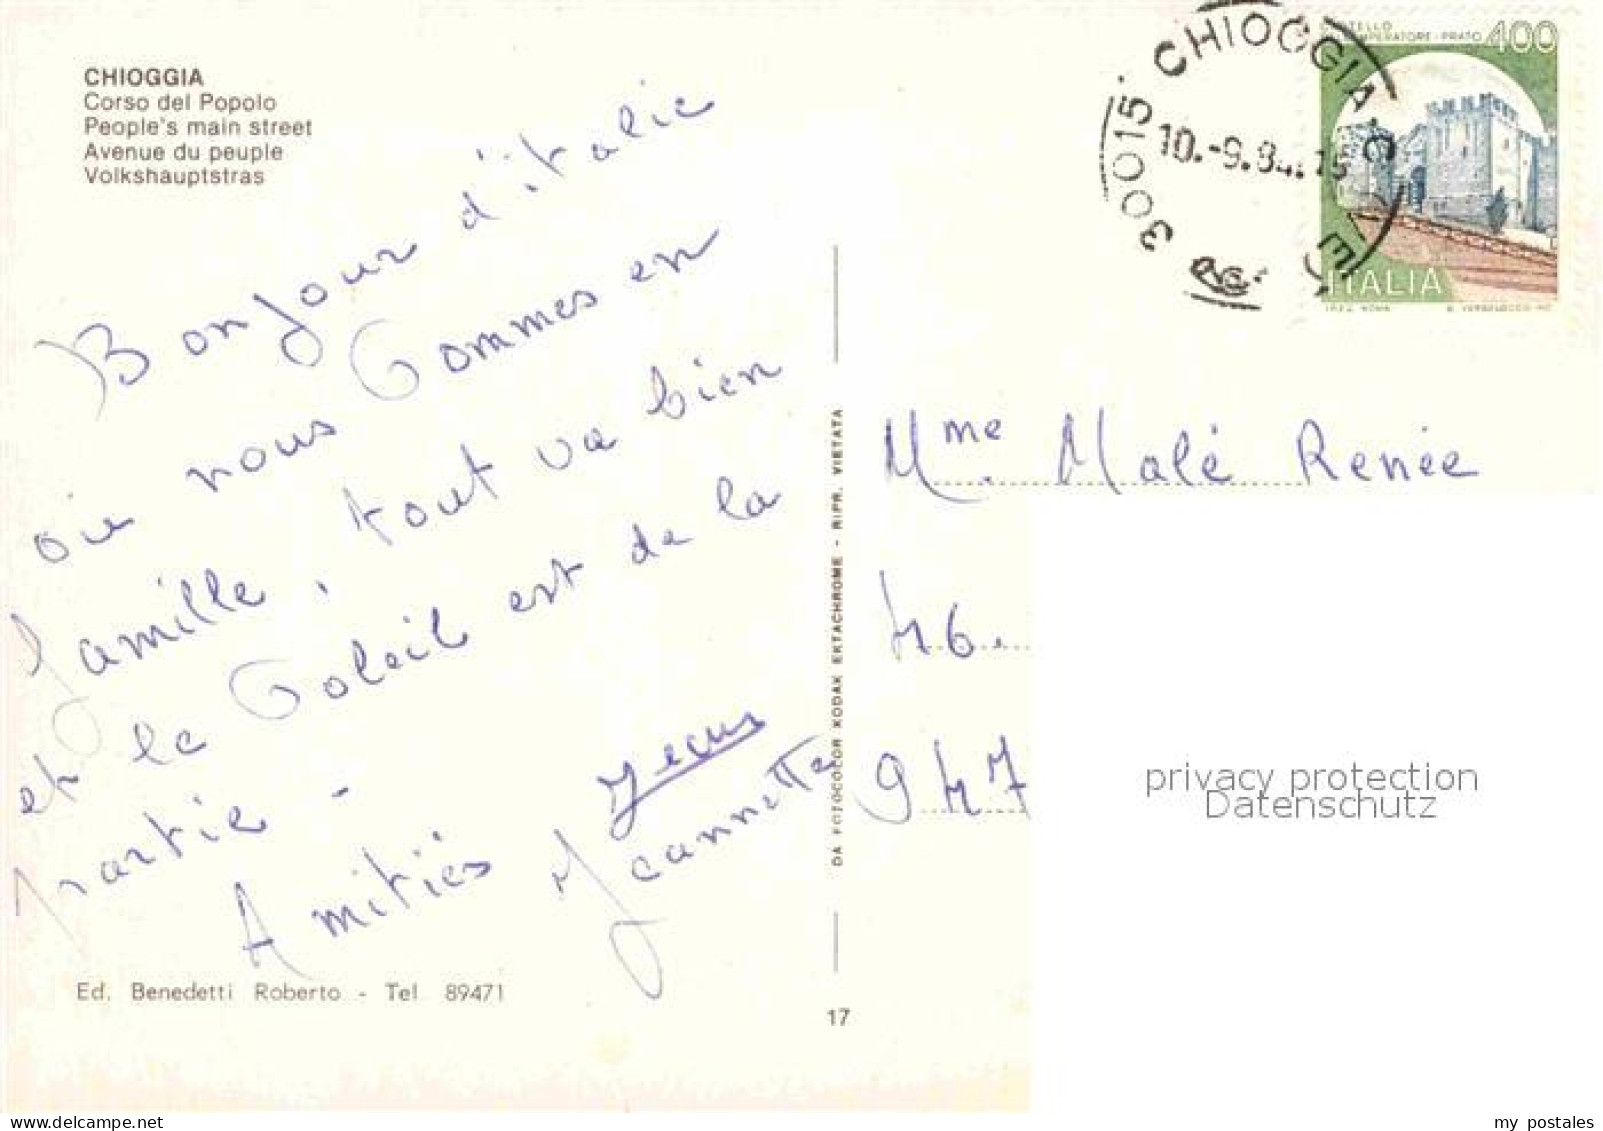 CHIOGGIA
Corso del Popolo
People's main street
Avenue du peuple
Volkshauptstras
Bonjour d'italie
où nous Sommes en
famille, tout va bien
et le Soleil est de la
partie -
Amitiés
Jeannette
Ed. Benedetti Roberto - Tel 89471
DA FOTOCOLOR KODAK EKTACHROME - RIPR. VIETATA
17
30015 CHIOGGIA
10.-9.84.15
400
PRATO
ITALIA
Mme. Malé Renée
46.
947
privacy protection
Datenschutz
my postales